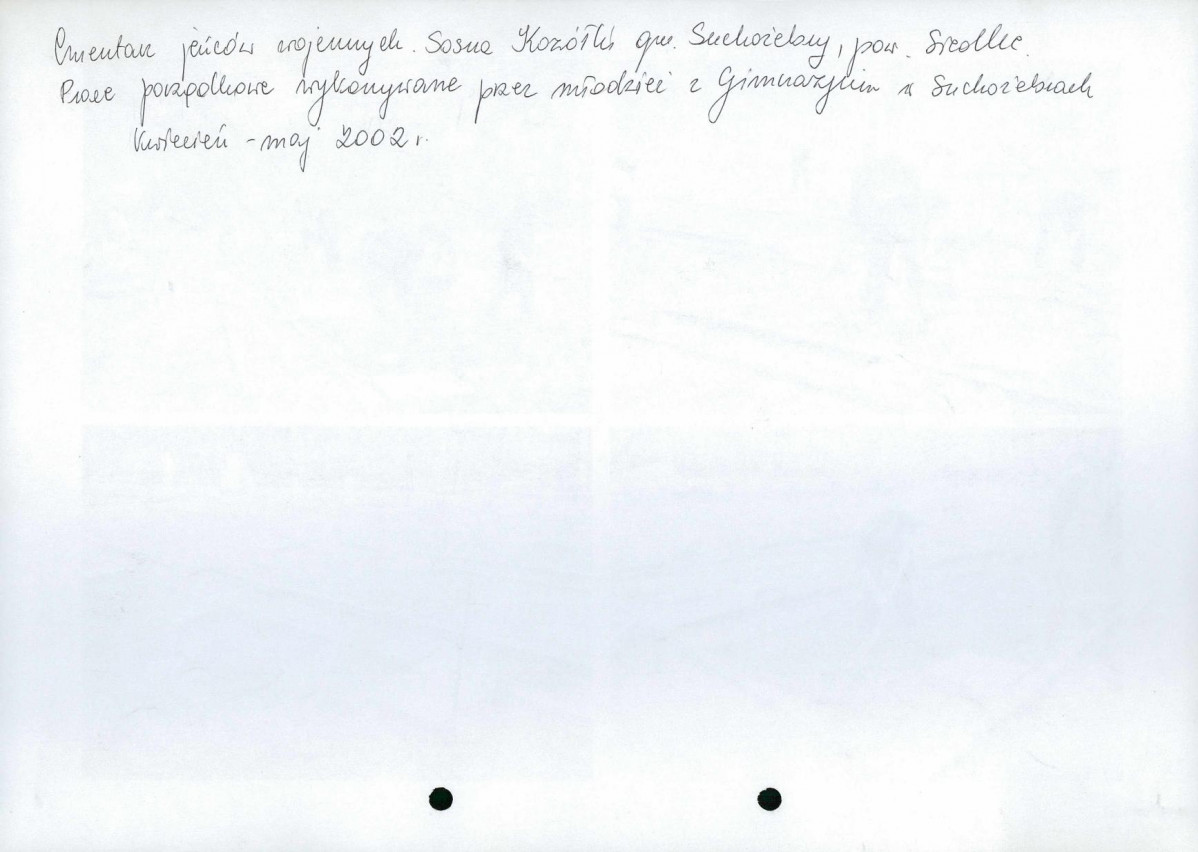 Cmentarz jeńców wojennych. Sosna Kozółki gm. Suchożebry, pow. Siedlce.
Prace porządkowe wykonywane przez młodzież z Gimnazjum w Suchożebrach
Kwiecień - maj 2002 r.